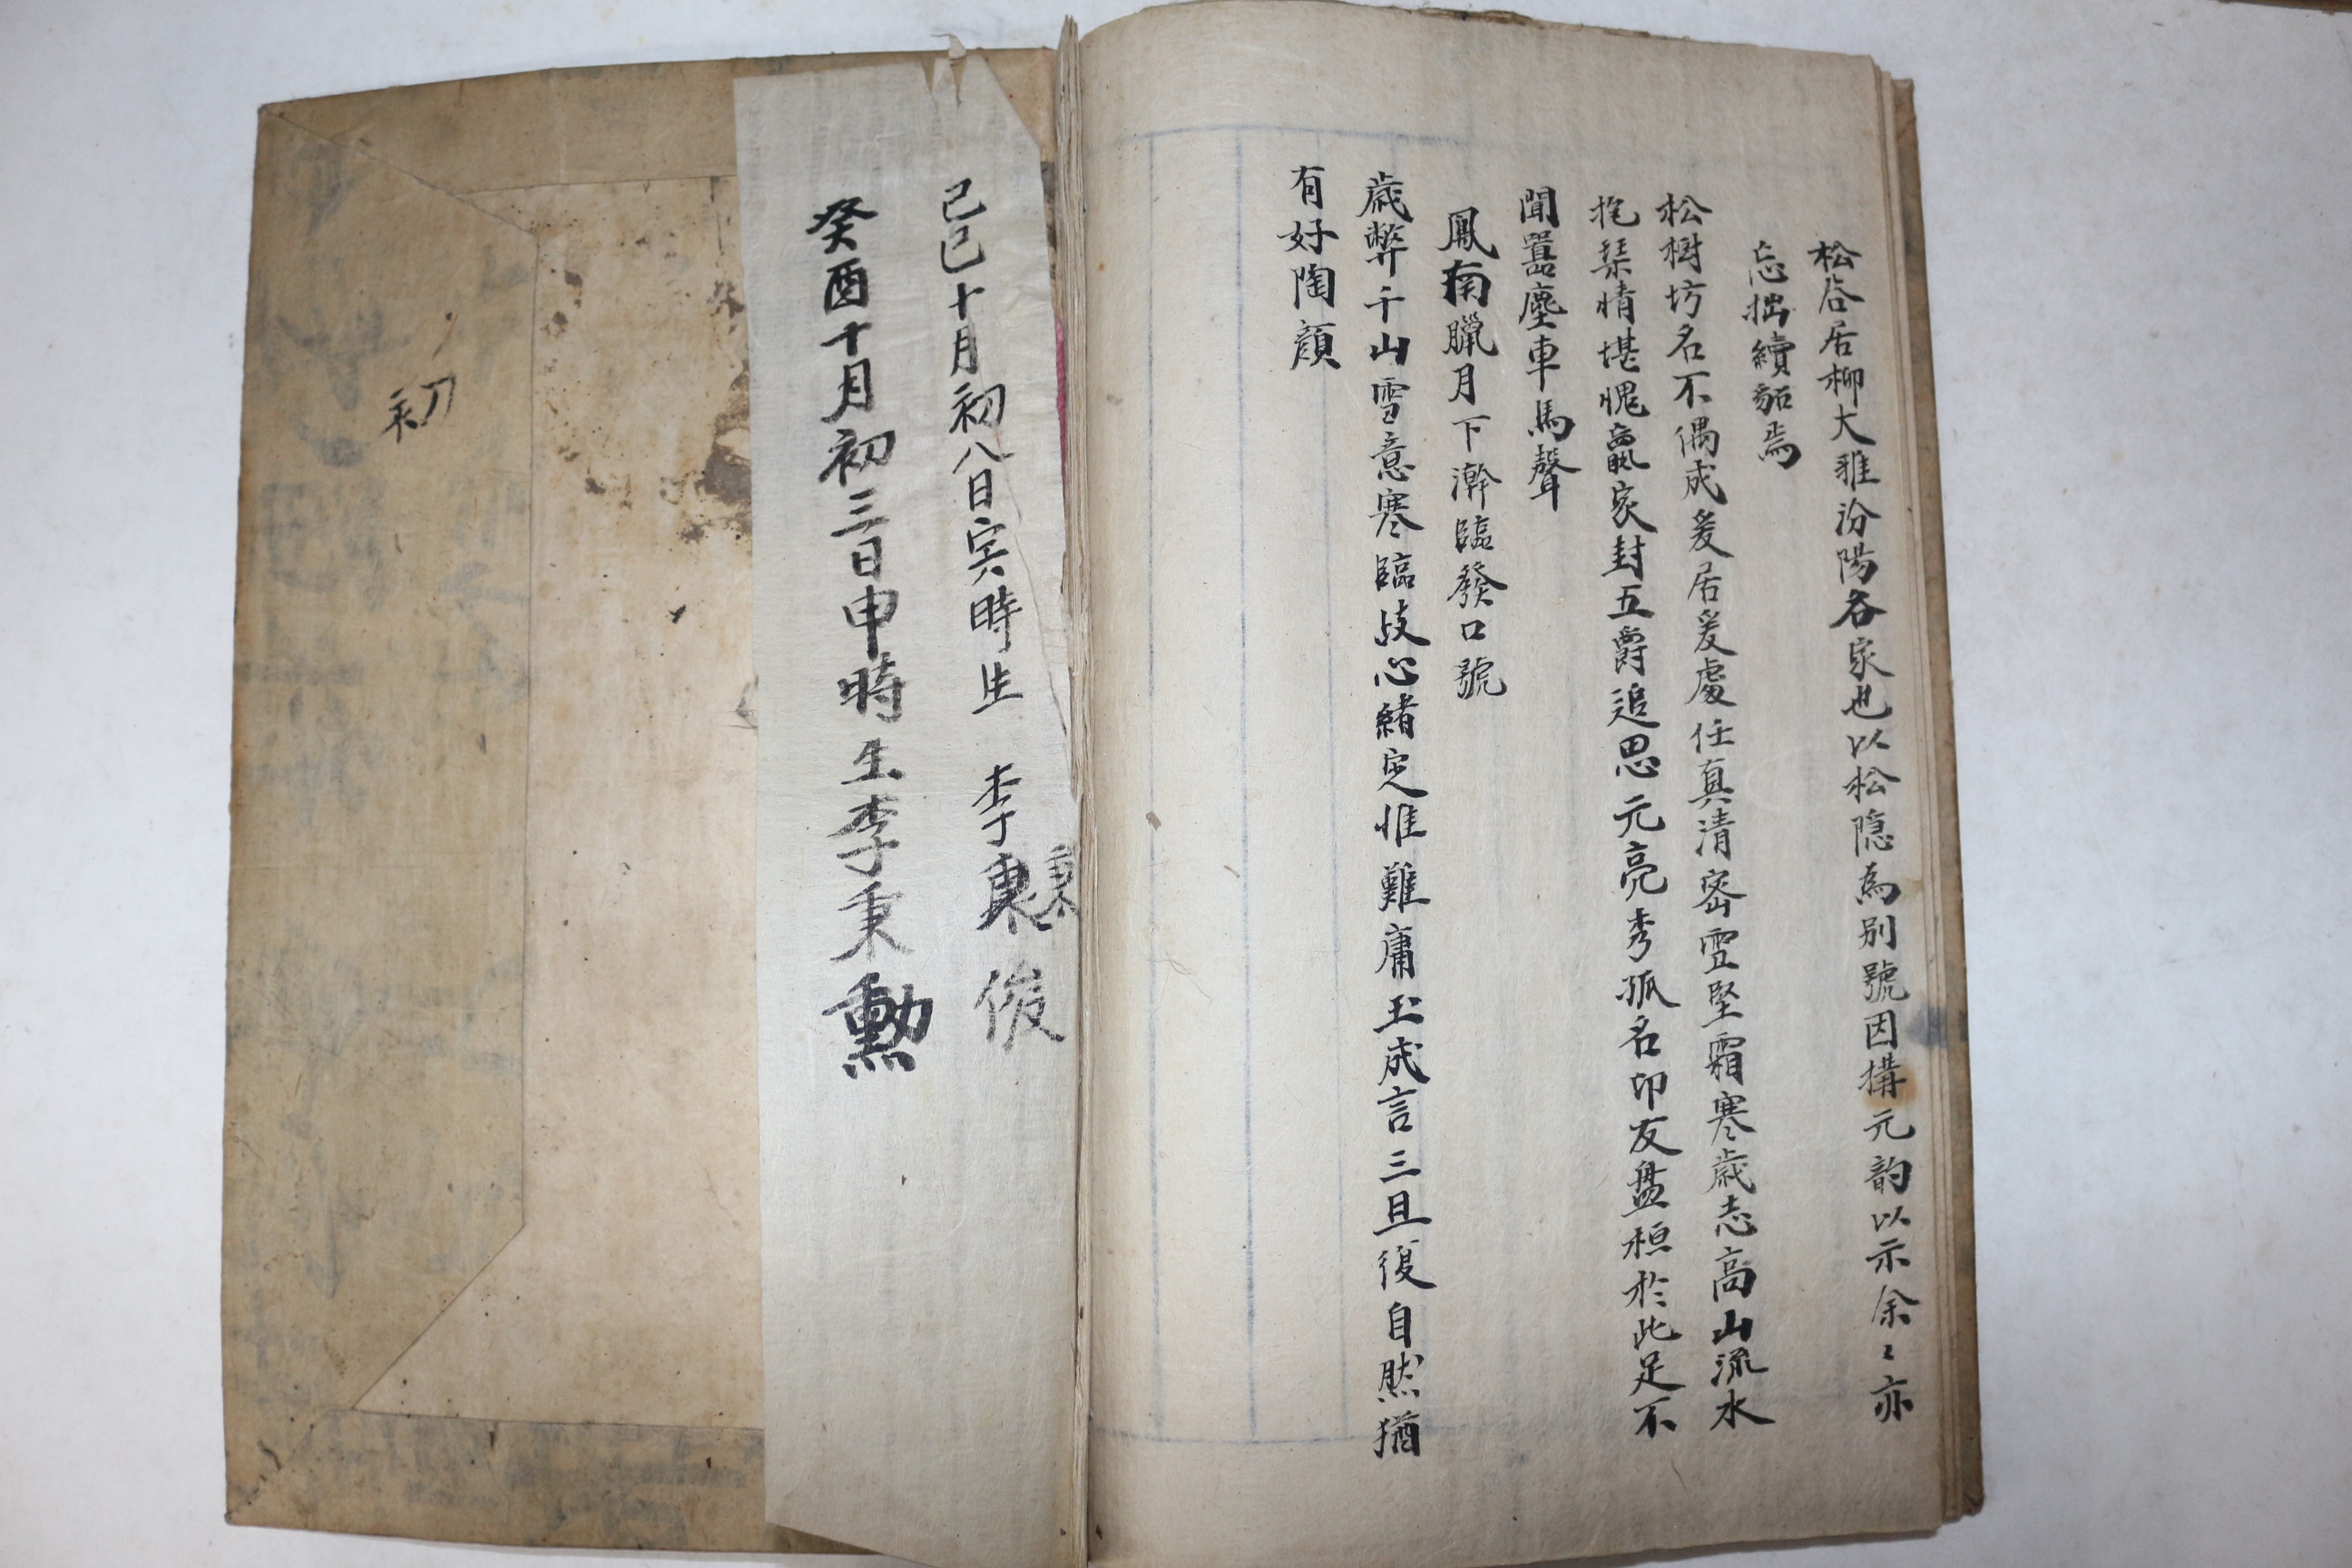 松居柳大雅汾陽各家也以松隐為別號因搆元韵以示余〻亦
忘拙續貂焉
松樹坊名不偶成爰居爰處任真清密雪堅霜寒歲志高山流水
抱琹情堪愧家封五爵追思元亮秀孤名卬友盤桓於此足不
聞囂塵車馬聲
鳳南臘月下澣臨發口號
歲弊千山雪意寒臨歧心緒定惟難庸玉成言三且復自然猶
有好陶顔
己巳十月初八日寅時生 李秉俊
秉
癸酉十月初三日申時生李秉勳
初